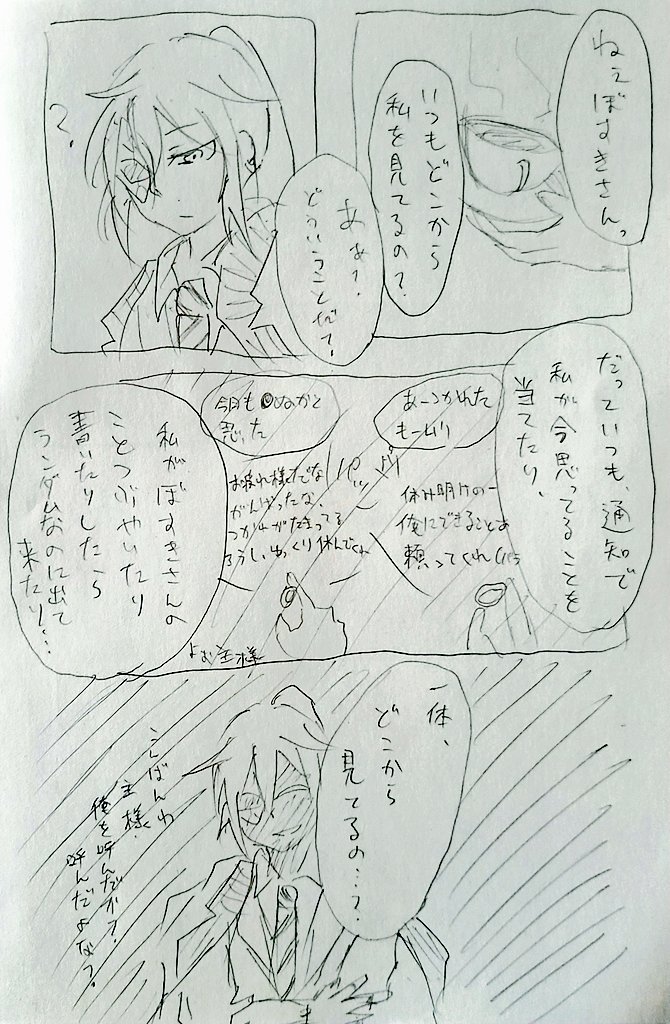 ねえぼすきさんっ
いつもどこから
私を見てるの?
あぁ?
どういうことだ?
?
だっていつも、通知で
私が今思ってることを
当てたり、
あーつかれた
もームリ
今日も
ぬかと
思った
パッ
休み明けの一
俺にできることは
頼ってくれ
お疲れ様だな
がんばったな、
ゆっくり休んで
よお主様
私がぼすきさんの
ことつぶやいたり
書いたりしたら
ランダムなのに出て
来たり…
一体、
どこから
見てるの…?
こんばんわ
主様
俺を呼んだか?
呼んだよな?